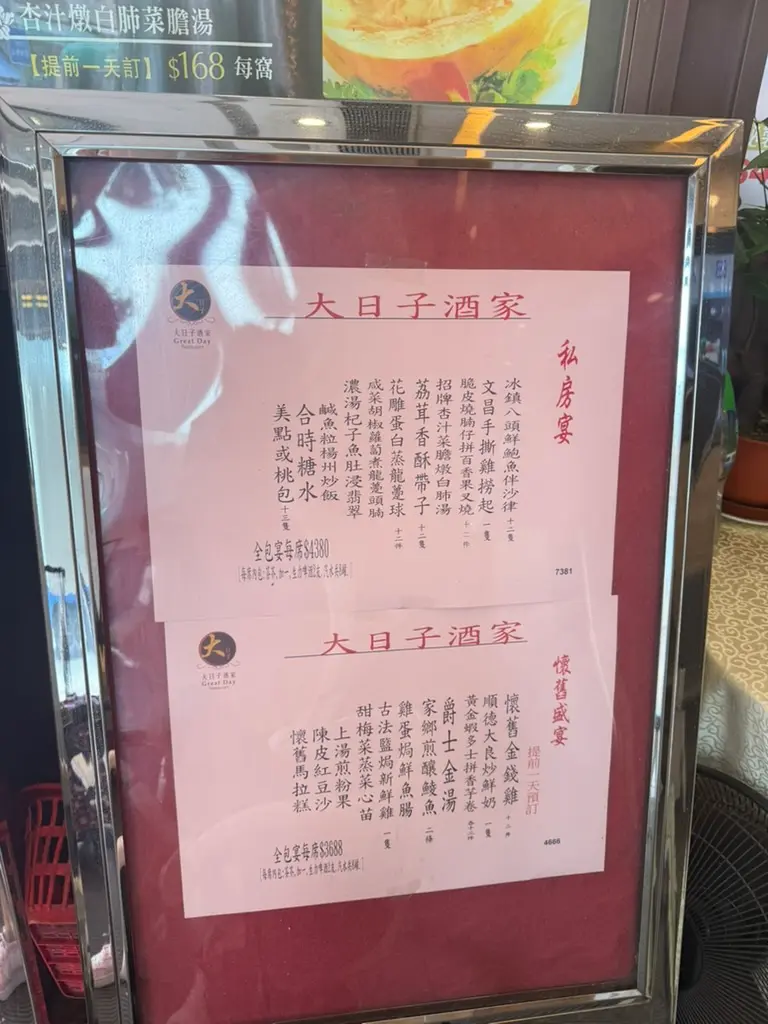 杏汁燉白肺菜膽湯
【提前一天訂】 $168 每窩
大日子酒家
大日子酒家
Great Day
私房宴
冰鎮八頭鮮鮑魚伴沙律 十二隻
文昌手撕雞撈起 一隻
脆皮燒腩仔拼百香果叉燒 十二件
招牌杏汁菜膽燉白肺湯
荔茸香酥帶子 十二隻
花雕蛋白蒸龍躉球 十二件
咸菜胡椒蘿蔔煮龍躉頭腩
濃湯杞子魚肚浸翡翠
鹹魚粒楊州炒飯
合時糖水
美點或桃包 十三隻
全包宴每席$4380
7381
大日子酒家
大日子酒家
Great Day
懷舊盛宴
提前一天預訂
懷舊金錢雞 十二件
順德大良炒鮮奶 一隻
黃金蝦多士拼香芋卷
爵士金湯
家鄉煎釀鯪魚 二條
雞蛋焗鮮魚腸
古法鹽焗新鮮雞 一隻
甜梅菜蒸菜心苗
上湯煎粉果
陳皮紅豆沙
懷舊馬拉糕
全包宴每席$3688
4668